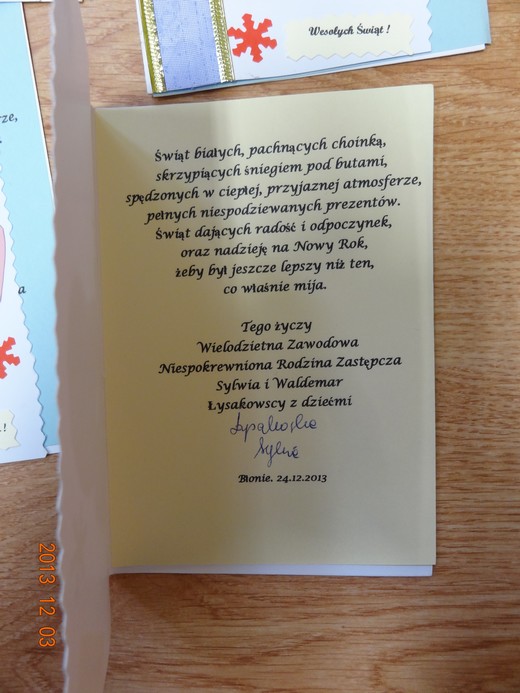 Wesołych Świąt !
rze,
a
!
Świąt białych, pachnących choinką,
skrzypiących śniegiem pod butami,
spędzonych w ciepłej, przyjaznej atmosferze,
pełnych niespodziewanych prezentów.
Świąt dających radość i odpoczynek,
oraz nadzieję na Nowy Rok,
żeby był jeszcze lepszy niż ten,
co właśnie mija.
Tego życzy
Wielodzietna Zawodowa
Niespokrewniona Rodzina Zastępcza
Sylwia i Waldemar
Łysakowscy z dziećmi
Błonie. 24.12.2013
2013 12 03